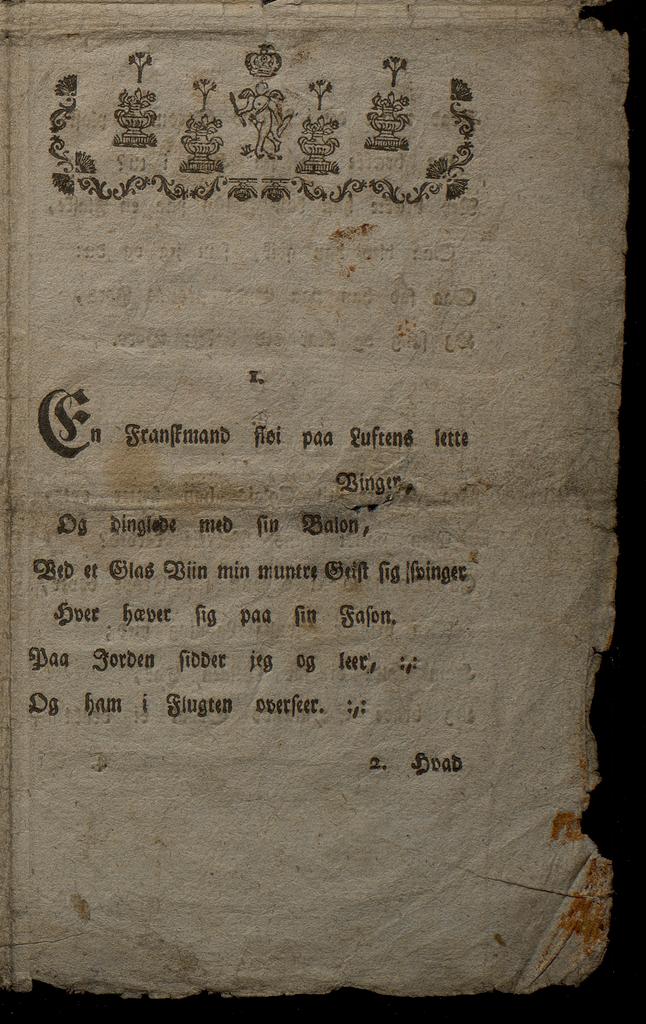 1.
En Franskmand fløi paa Luftens lette
Vinger,
Og dinglede med sin Balon,
Ved et Glas Viin min muntre Geist sig svinger
Hver hæver sig paa sin Fason.
Paa Jorden sidder jeg og leer, :,:
Og ham i Flugten overseer. :,:
2. Hvad